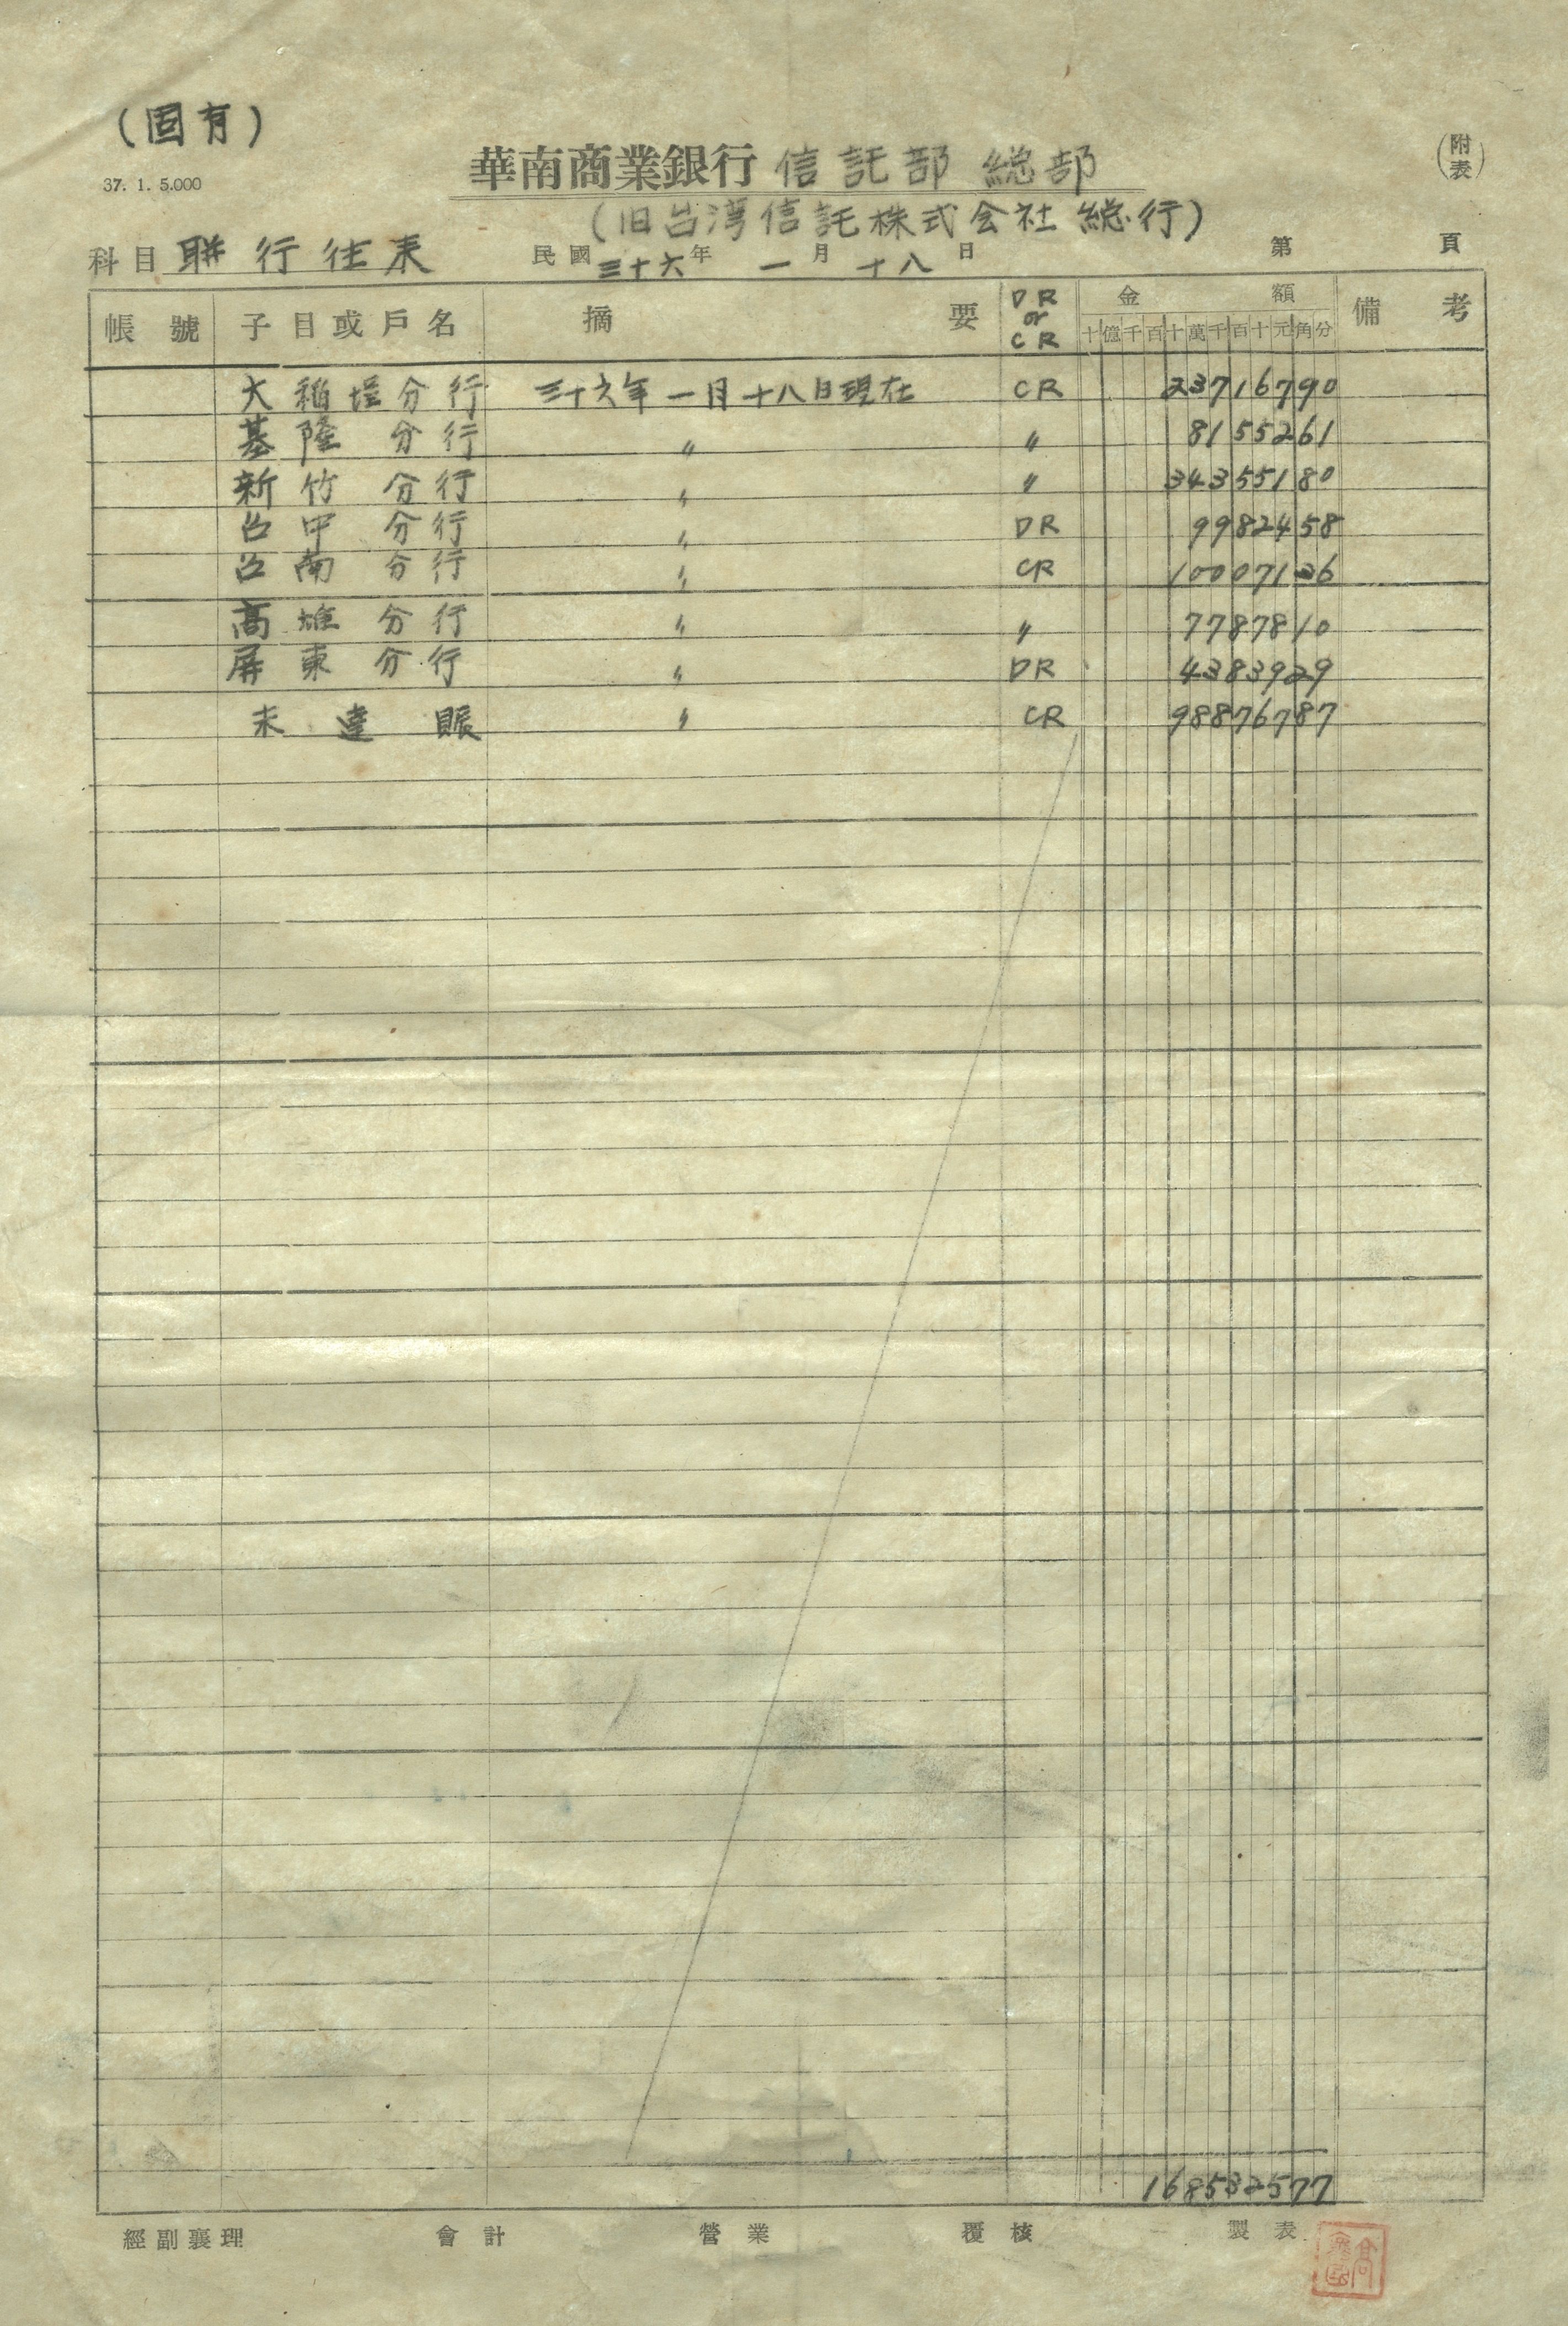 (固有)
37. 1. 5.000
華南商業銀行 信託部 総部
(附表)
(旧台湾信託株式会社 総行)
科目 聯行往来 民國三十六年 一月 十八日 第 頁
帳號 子目或戶名 摘要 DR or CR 金額 備考
十億千百十萬千百十元角分
大稻埕分行 三十六年一月十八日現在 CR 23716790
基隆分行 〃 〃 8155261
新竹分行 〃 〃 34355180
台中分行 〃 DR 9982458
台南分行 〃 CR 10007136
高雄分行 〃 〃 7787810
屏東分行 〃 DR 4383929
未達賬 〃 CR 98876787
168532577
經副襄理 會計 營業 覆核 製表